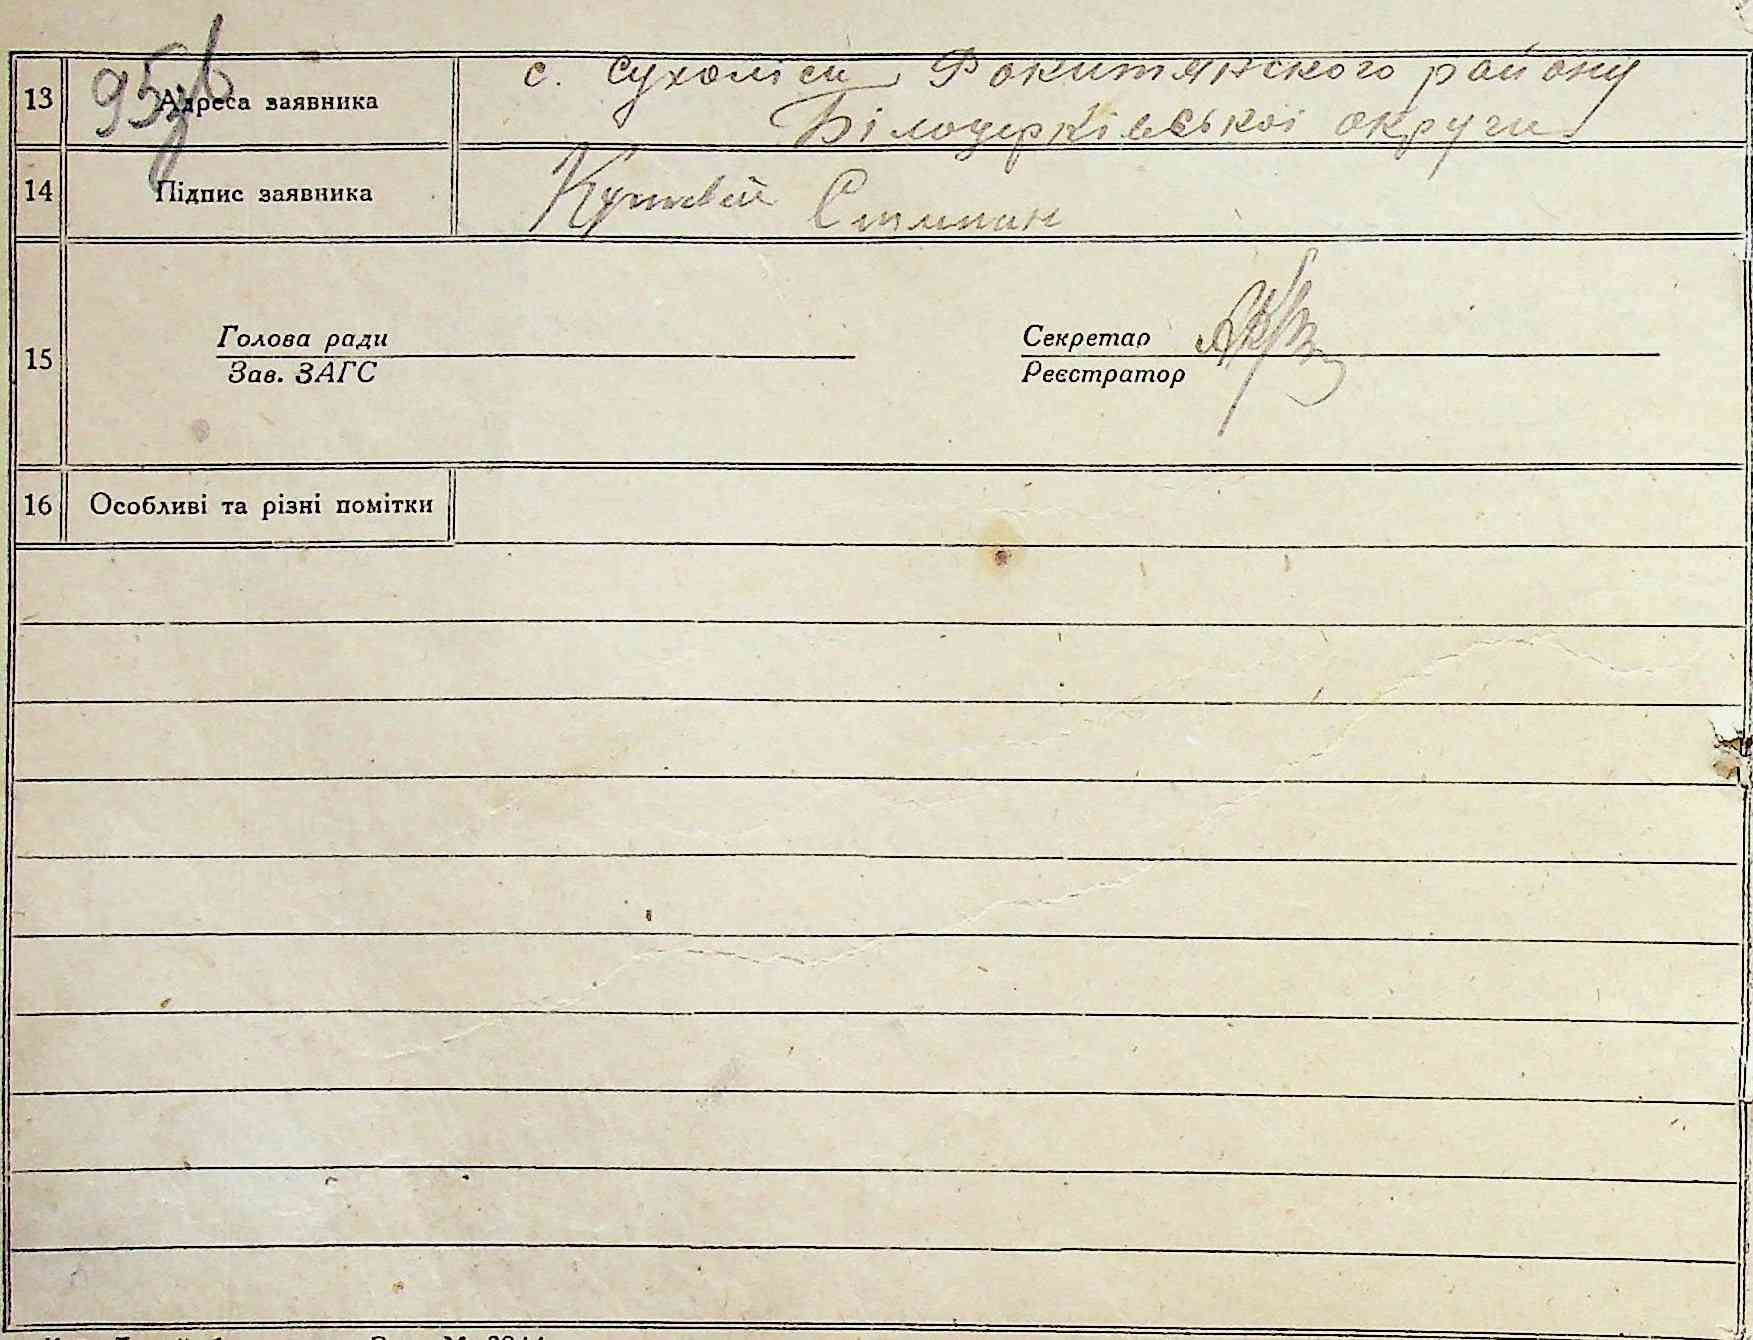 13 Адреса заявника с. Сухоліси Рокитянского району
Білоцерківської округи
14 Підпис заявника Кутовий Степан
15 Голова ради Секретар
Зав. ЗАГС Реєстратор
16 Особливі та різні помітки